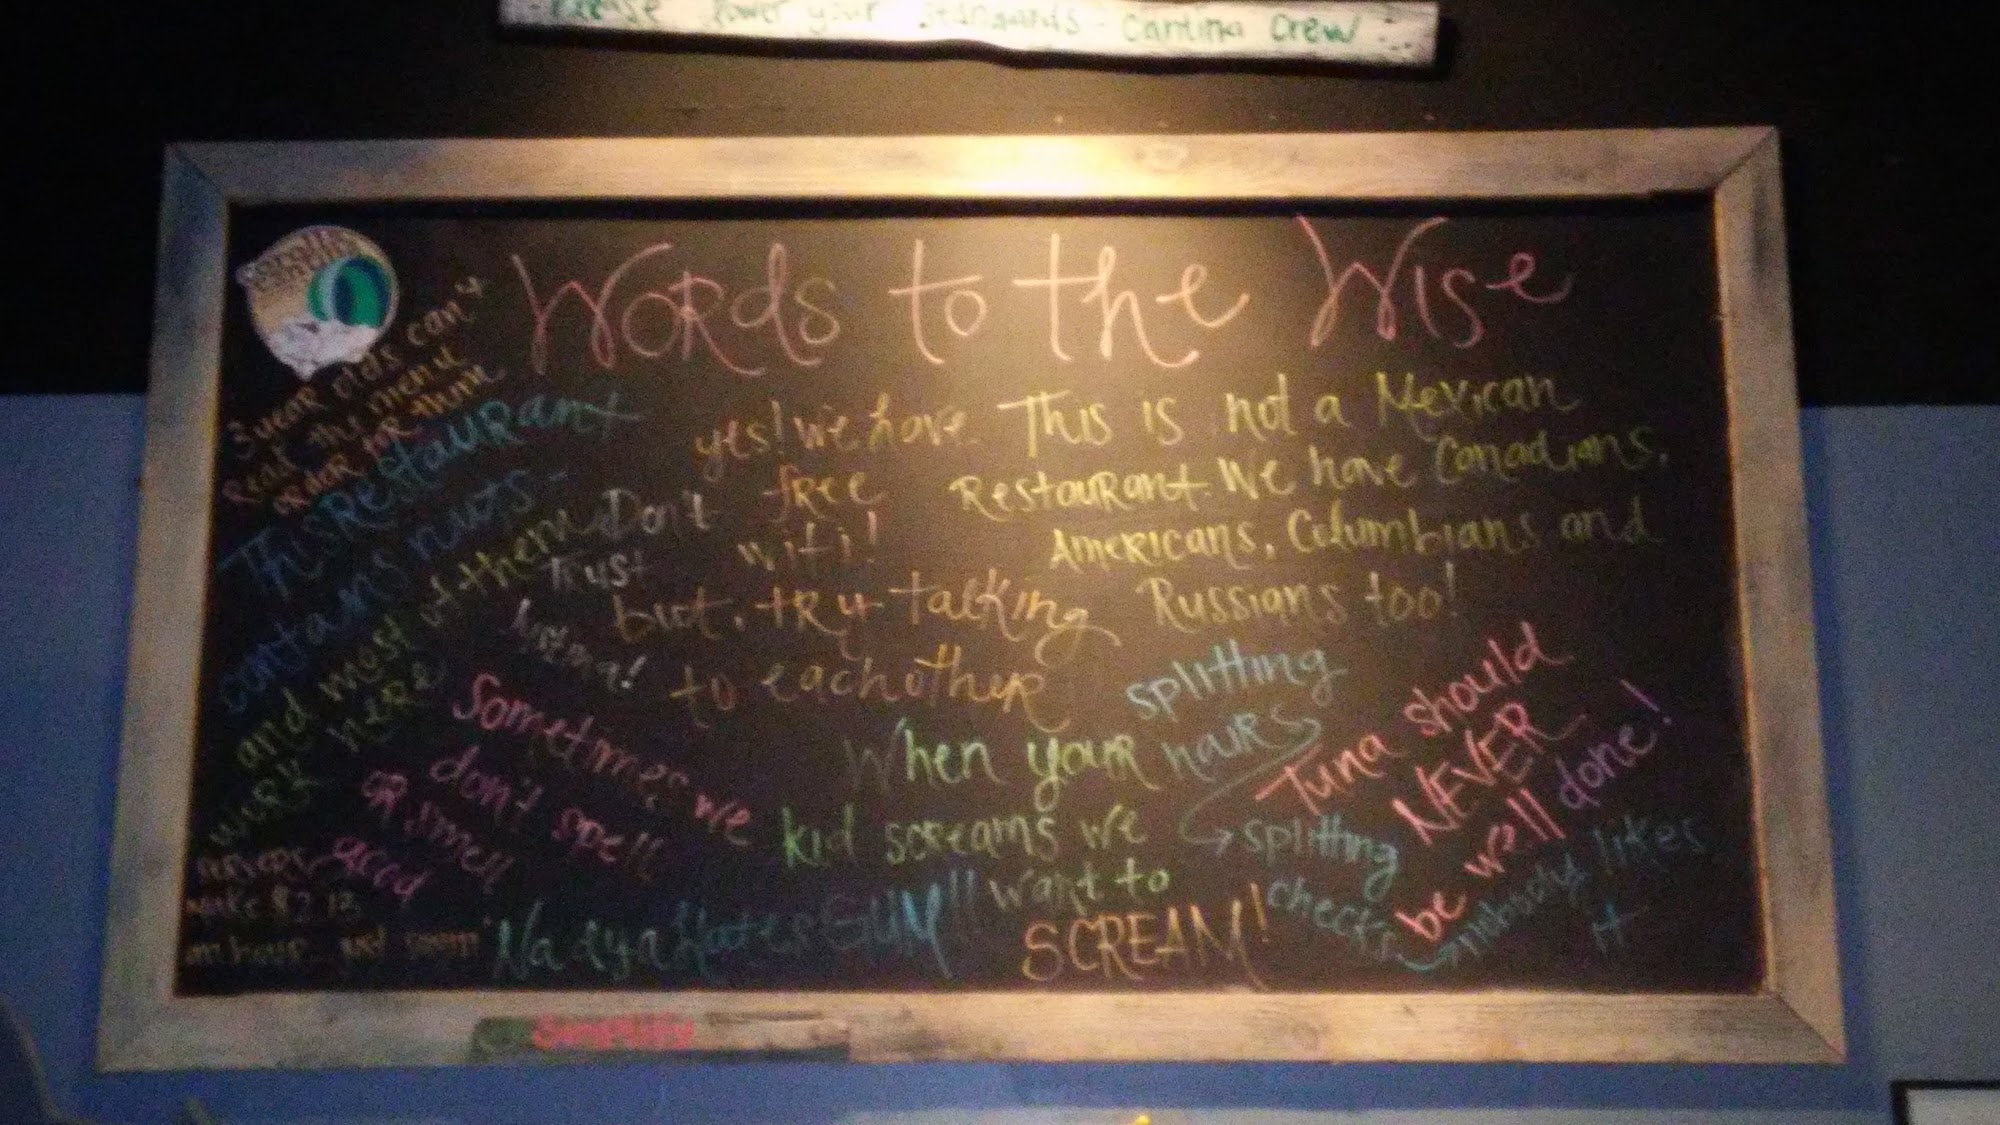 Please lower your standards - Cantina Crew
Words to the Wise
3 year olds can't
read the menu
order for them
This Restaurant
contains nuts -
and most of them
work here
Don't
Trust
yes! we have
free
wifi!
but, try talking
to each other
This is not a Mexican
Restaurant. We have Canadians,
Americans, Columbians and
Russians too!
Sometimes we
don't spell
or smell
good
servers
make $2.13
an hour... just sayin
Nadya Hates GUM!!
When your
kid screams we
want to
SCREAM!
splitting
hairs
splitting
checks
nobody likes
it
Tuna should
NEVER
be well done!
Simplify